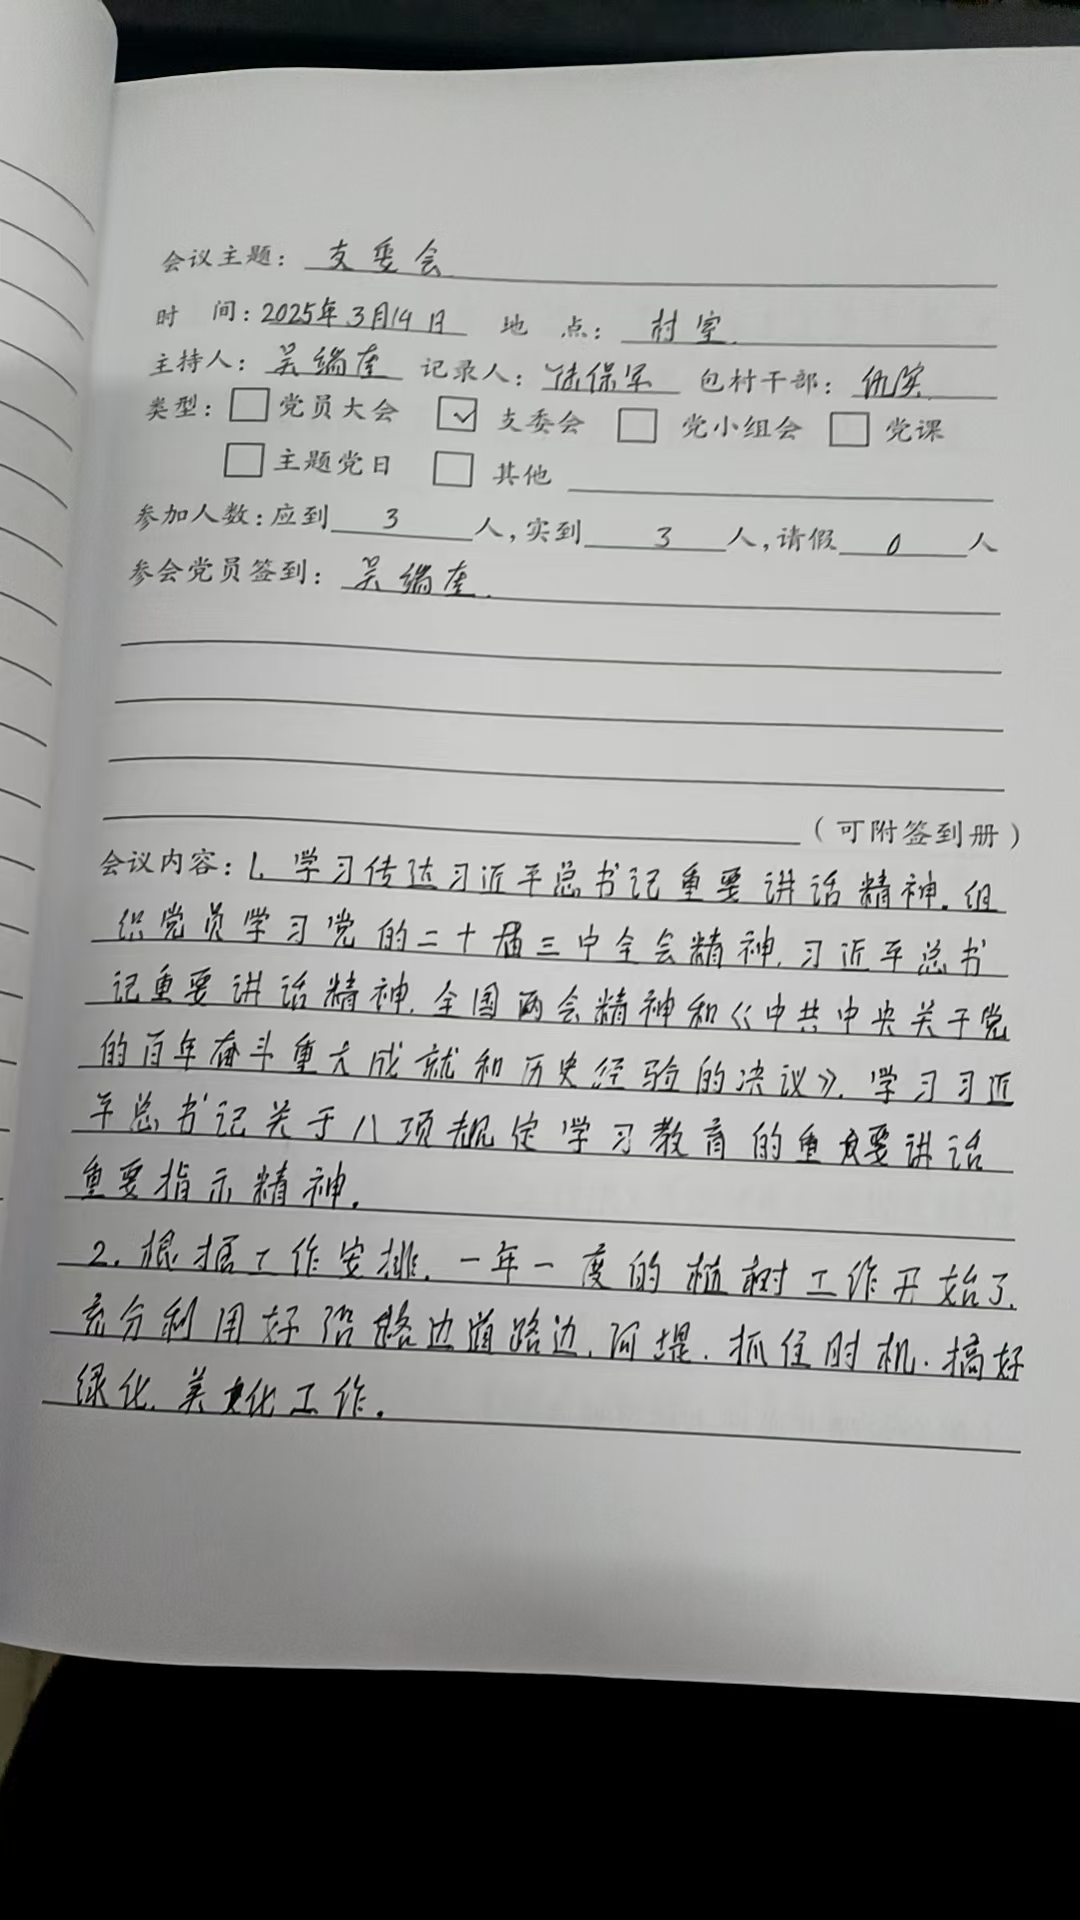 会议主题：支委会
时 间：2025年3月19日 地 点：村室.
主持人：吴端奎 记录人：陆保军 包村干部：仇实
类型：□党员大会 ☑支委会 □党小组会 □党课
□主题党日 □其他
参加人数：应到 3 人，实到 3 人，请假 0 人
参会党员签到：吴端奎.
（可附签到册）
会议内容：1. 学习传达习近平总书记重要讲话精神。组
织党员学习党的二十届三中全会精神，习近平总书
记重要讲话精神，全国两会精神和《中共中央关于党
的百年奋斗重大成就和历史经验的决议》，学习习近
平总书记关于八项规定学习教育的重要讲话
重要指示精神。
2. 根据工作安排，一年一度的植树工作开始了，
充分利用好沿路边道路边，河堤，抓住时机，搞好
绿化，美化工作。